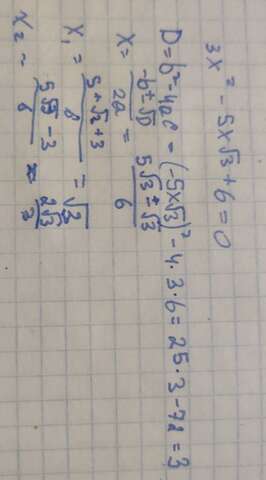 3x² - 5x√3 + 6 = 0
D = b² - 4ac = (-5x√3)² - 4·3·6 = 25·3 - 72 = 3
x = (-b ± √D)/2a = (5√3 ± √3)/6
x₁ = = √3
x₂ = (5√3 - 3)/6 = 2√3